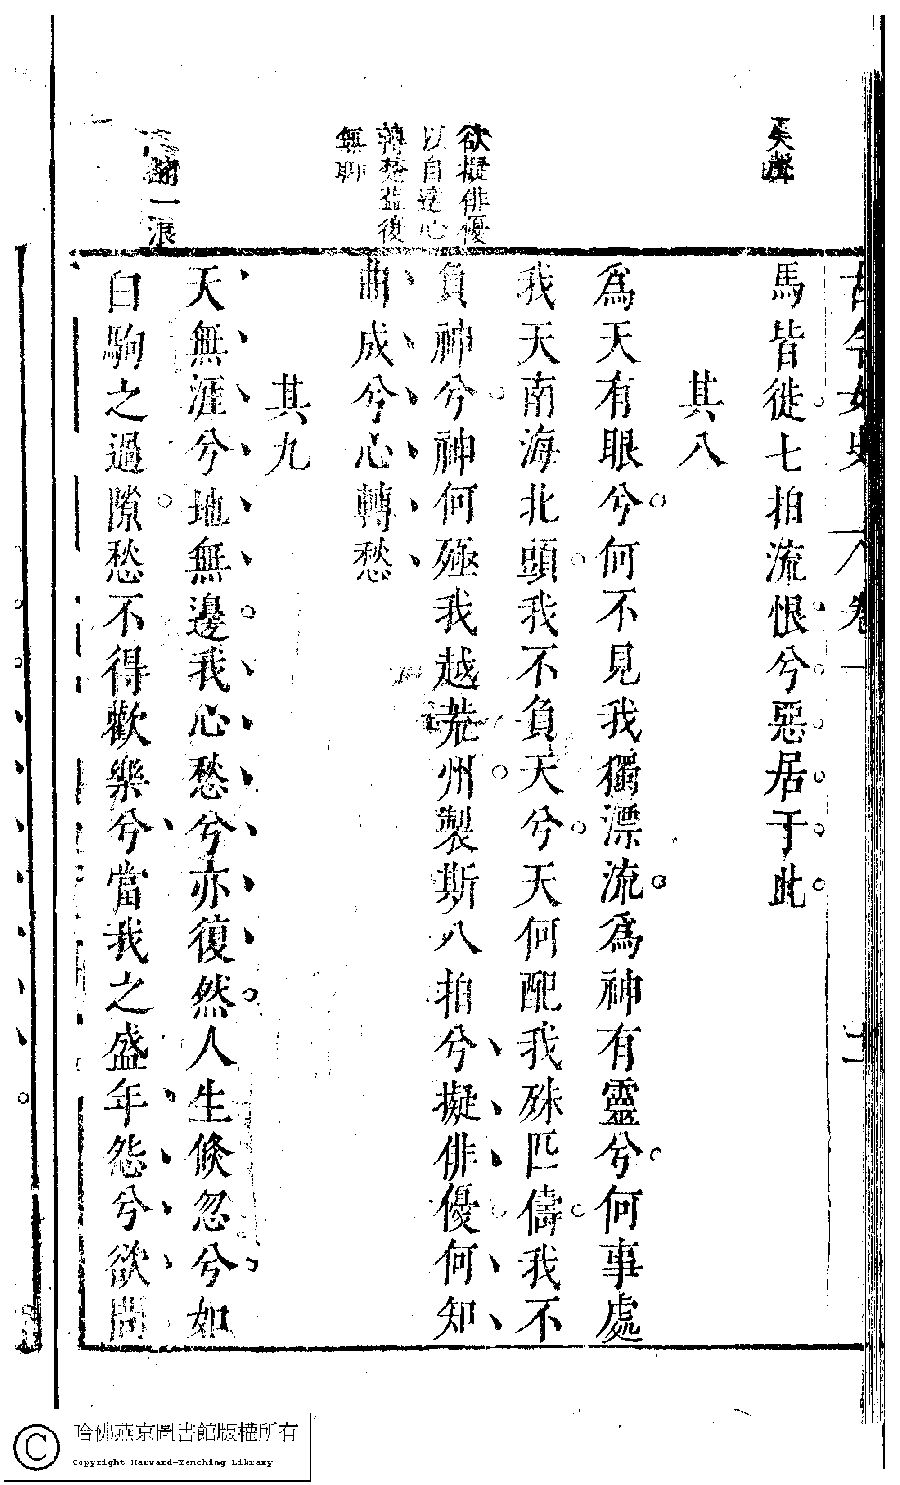 古今女史 卷一
馬皆徙七拍流恨兮惡居于此
其八
為天有眼兮何不見我獨漂流為神有靈兮何事處
我天南海北頭我不負天兮天何配我殊匹儔我不
負神兮神何殛我越荒州製斯八拍兮擬俳優何知
曲成兮心轉愁
其九
天無涯兮地無邊我心愁兮亦復然人生倐忽兮如
白駒之過隙愁不得歡樂兮當我之盛年怨兮欲問
欲擬俳優
以自遣心
轉愁益復
無聊
一浪
哈佛燕京圖書館版權所有
Copyright Harvard-Yenching Library